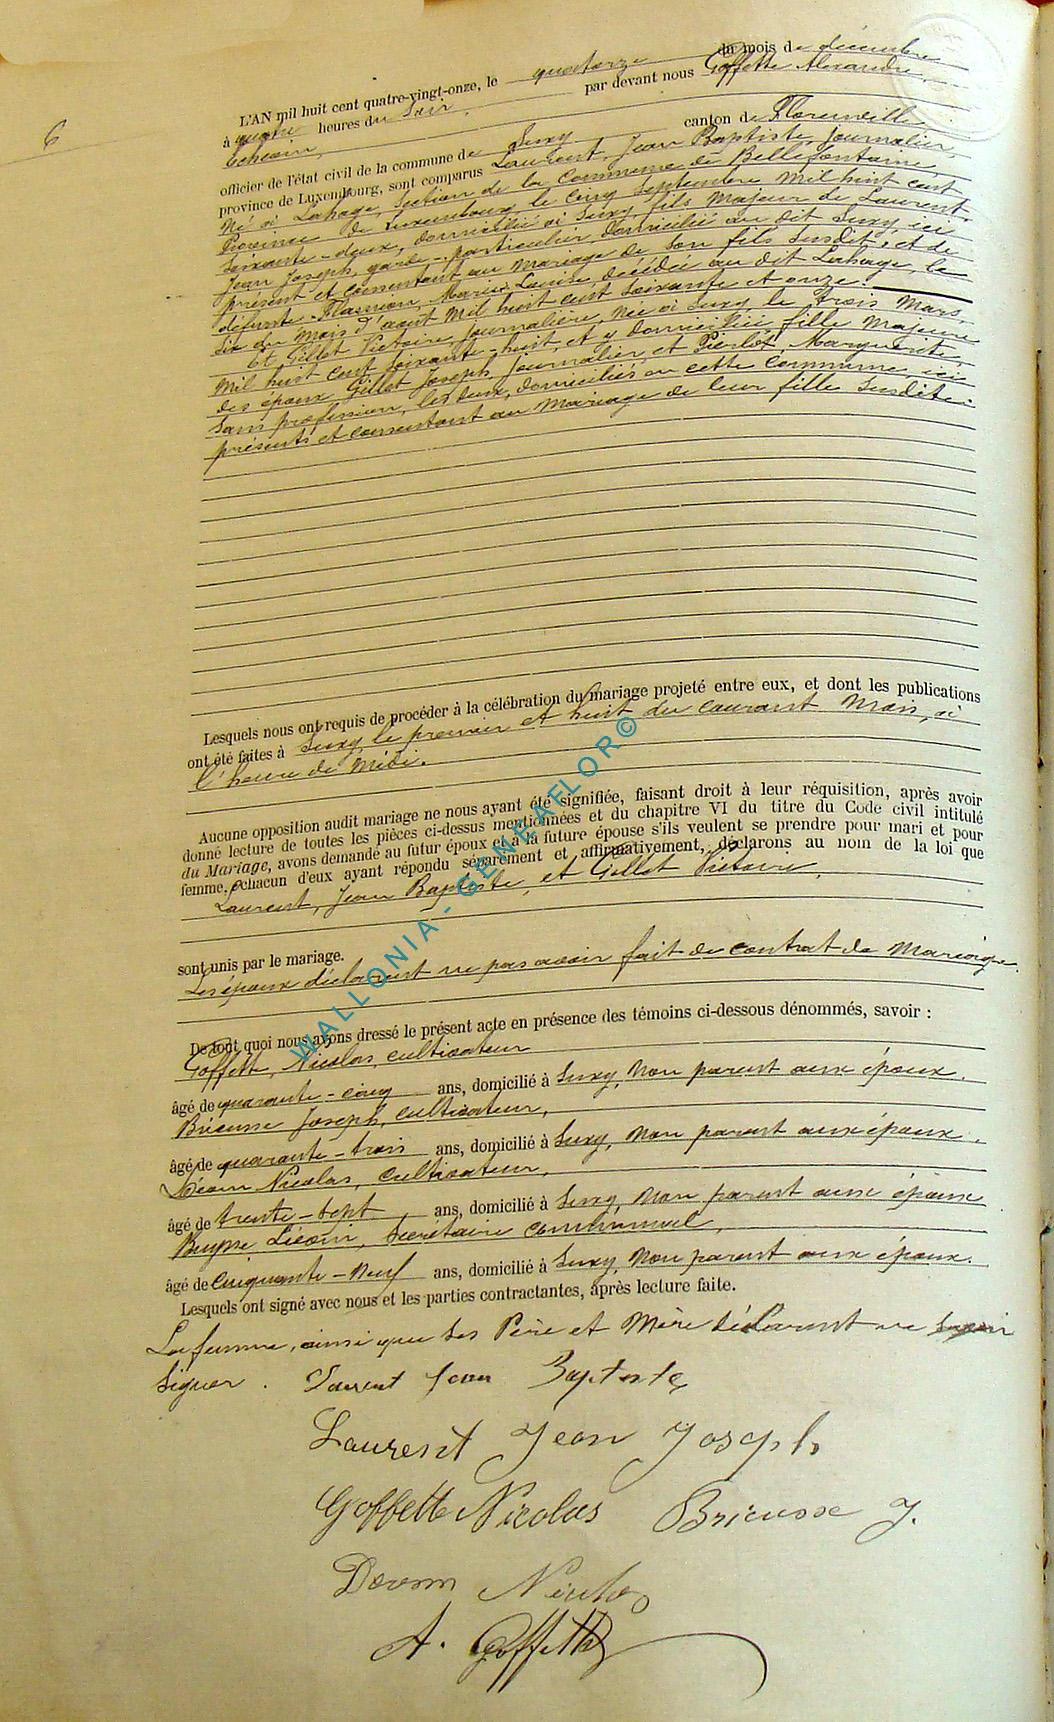 6
L'AN mil huit cent quatre-vingt-onze, le quatorze du mois de décembre
à quatre heures du Soir, par devant nous Goffette Alexandre,
Echevin,
officier de l'état civil de la commune de Suxy canton de Florenville
province de Luxembourg, sont comparus Laurent, Jean Baptiste, Journalier,
Né à Lahage, Section de la Commune de Bellefontaine
Province de Luxembourg le cinq Septembre Mil huit cent
Soixante-deux, domicilié à Suxy, fils Majeur de Laurent,
Jean Joseph, garde-particulier, domicilié au dit Suxy, ici
présent et consentant au Mariage de Son fils Susdit, et de
défunte Flasmon, Marie Louise, décédée au dit Lahage, le
Six du Mois d'aout Mil huit cent Soixante et onze.
Et Gillet Victoire, Journalière, Née à Suxy le trois Mars,
Mil huit cent Soixante-huit, et y domiciliée, fille Majeure
des époux Gillet Joseph, Journalier, et Pierlot, Marguerite,
Sans profession, les deux, domiciliés en cette Commune, ici
présents et consentant au Mariage de leur fille Susdite.
Lesquels nous ont requis de procéder à la célébration du mariage projeté entre eux, et dont les publications
ont été faites à Suxy, le premier et huit du courant Mois, à
l'heure de Midi.
Aucune opposition audit mariage ne nous ayant été signifiée, faisant droit à leur réquisition, après avoir
donné lecture de toutes les pièces ci-dessus mentionnées et du chapitre VI du titre du Code civil intitulé
du Mariage, avons demandé au futur époux et à la future épouse s'ils veulent se prendre pour mari et pour
femme. Chacun d'eux ayant répondu séparément et affirmativement, déclarons au nom de la loi que
Laurent, Jean Baptiste, et Gillet Victoire,
sont unis par le mariage.
Les époux déclarent ne pas avoir fait de contrat de Mariage.
De tout quoi nous avons dressé le présent acte en présence des témoins ci-dessous dénommés, savoir :
Goffette, Nicolas, cultivateur
âgé de quarante-cinq ans, domicilié à Suxy, Non parent aux époux.
Bricusse Joseph, cultivateur,
âgé de quarante-trois ans, domicilié à Suxy, Non parent aux époux.
Nicolas, cultivateur,
âgé de trente-Sept ans, domicilié à Suxy, Non parent aux époux
Secrétaire communal,
âgé de Cinquante-Neuf ans, domicilié à Suxy, Non parent aux époux.
Lesquels ont signé avec nous et les parties contractantes, après lecture faite.
La femme, ainsi que Ses Père et Mère déclarent ne Savoir
Signer. Laurent Jean Baptiste
Laurent Jean Joseph
Goffette Nicolas Bricusse J.
Nicolas
A. Goffette
WALLONIA-GENEAFLOR©